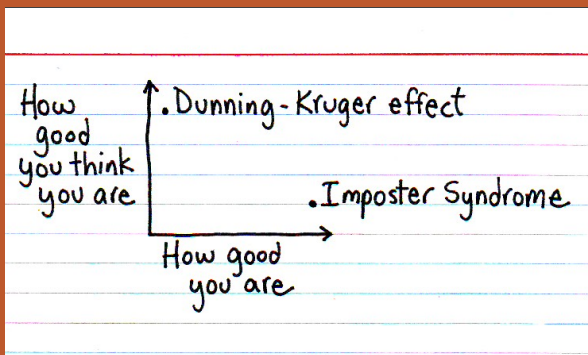 How
good
you think
you are
. Dunning-Kruger effect
. Imposter Syndrome
How good
you are